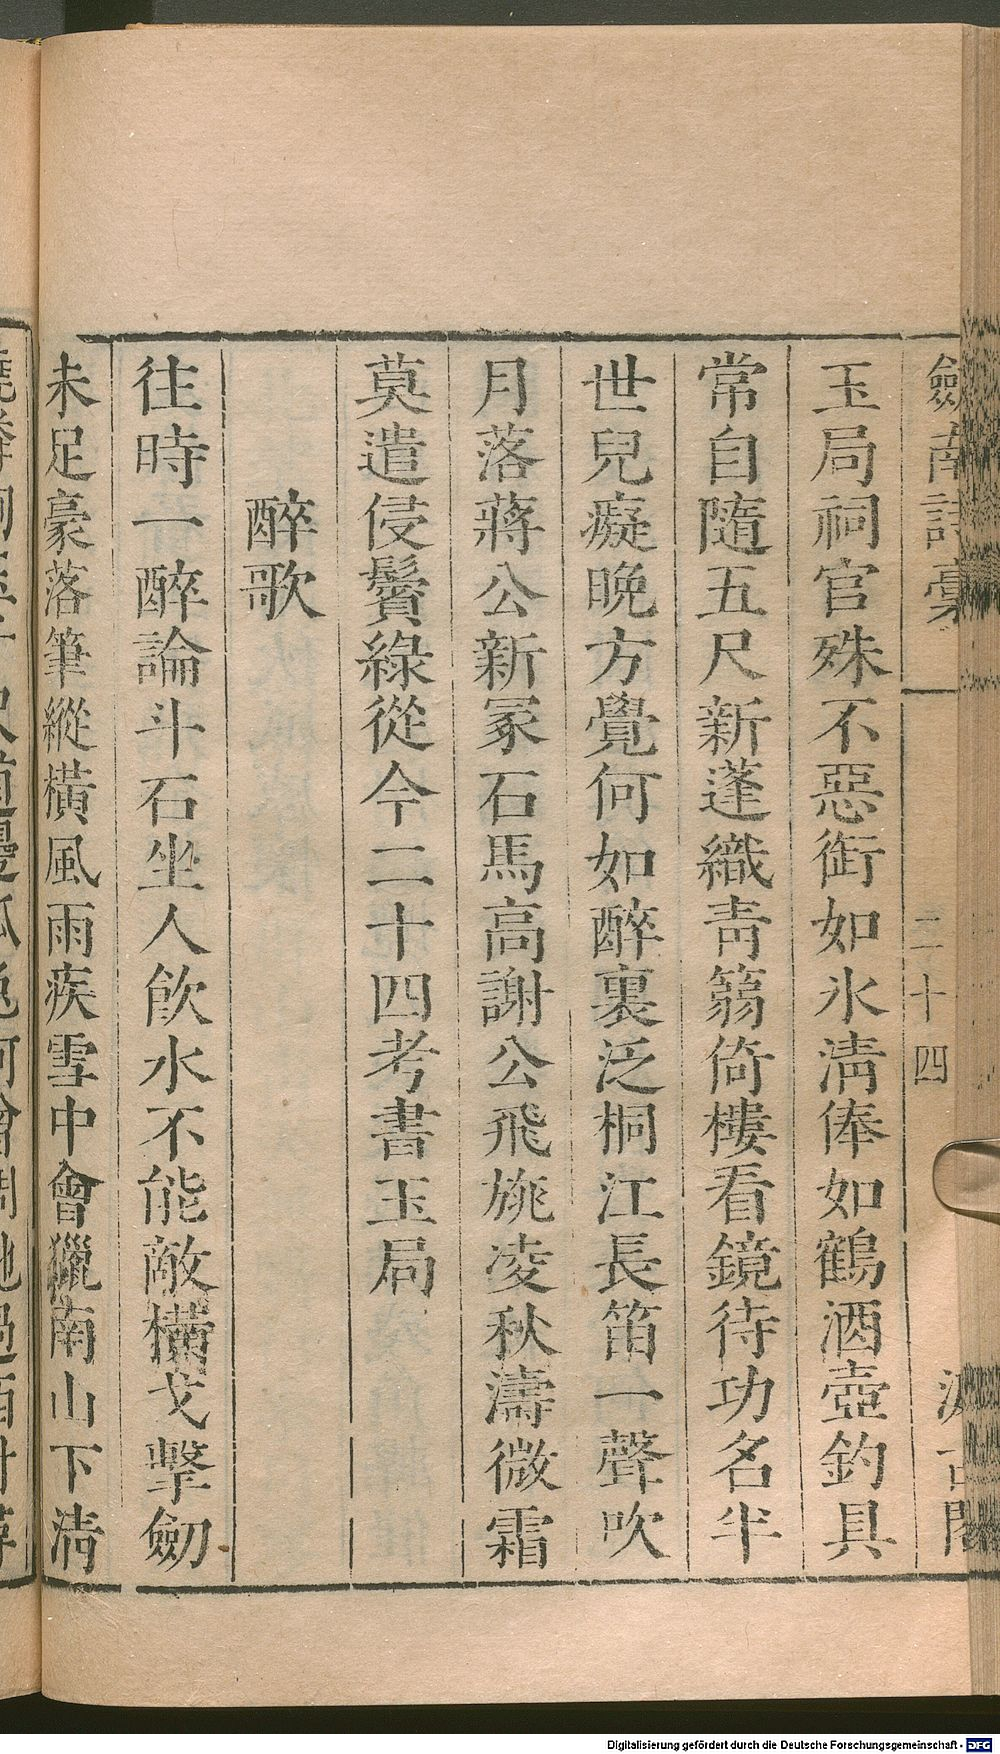 劒南詩稾
二十四
玉局祠官殊不惡銜如氷淸俸如鶴酒壺釣具
常自隨五尺新蓬織靑篛倚樓看鏡待功名半
世兒癡晚方覺何如醉裏泛桐江長笛一聲吹
月落蔣公新冢石馬高謝公飛旐凌秋濤微霜
莫遣侵鬢綠從今二十四考書玉局
醉歌
往時一醉論斗石坐人飮水不能敵橫戈擊劒
未足豪落筆縱橫風雨疾雪中會獵南山下淸
Digitalisierung gefördert durch die Deutsche Forschungsgemeinschaft - DFG